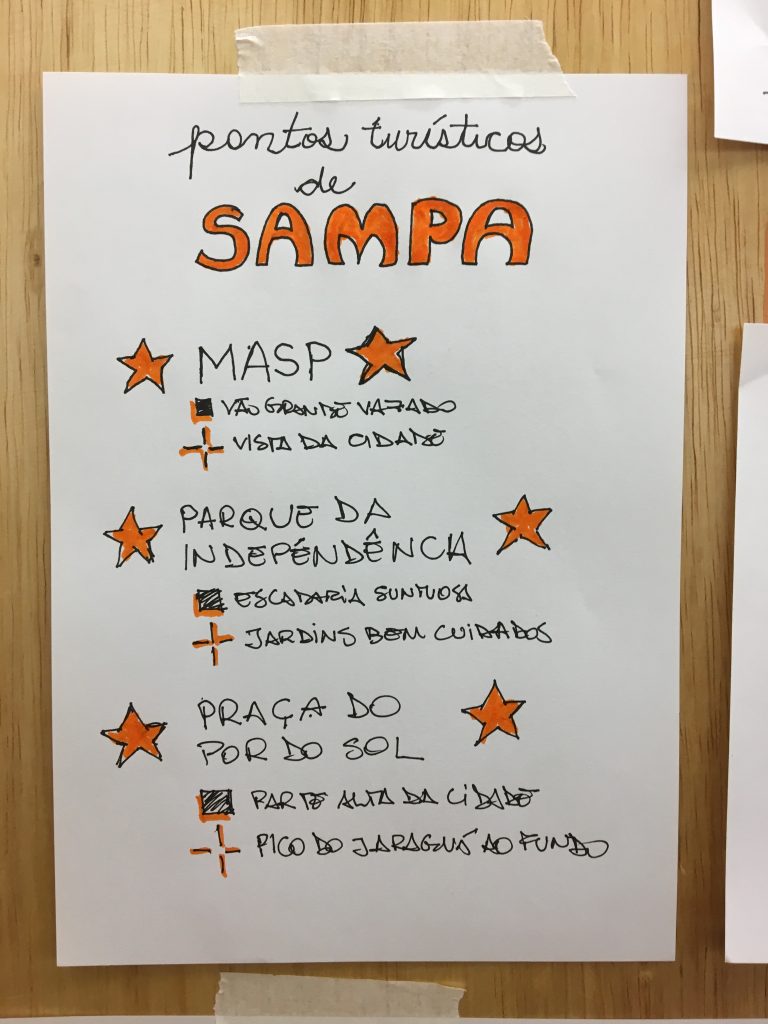 pontos turísticos
de
SAMPA
MASP
VÃO GRANDE VAZADO
VISTA DA CIDADE
PARQUE DA
INDEPÉNDÊNCIA
ESCADARIA SUNTUOSA
JARDINS BEM CUIDADOS
PRAÇA DO
POR DO SOL
PARTE ALTA DA CIDADE
PICO DO JARAGUÁ AO FUNDO